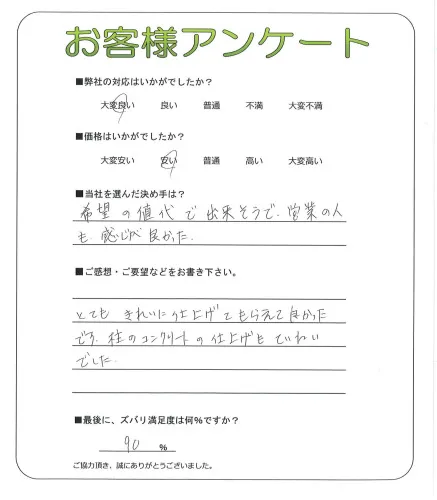 お客様アンケート
■弊社の対応はいかがでしたか？
大変良い 良い 普通 不満 大変不満
■価格はいかがでしたか？
大変安い 安い 普通 高い 大変高い
■当社を選んだ決め手は？
希望の値代で出来そうで、営業の人
も感じが良かった。
■ご感想・ご要望などをお書き下さい。
とてもきれいに仕上げてもらえて良かった
です。柱のコンクリートの仕上げもていねい
でした。
■最後に、ズバリ満足度は何％ですか？
90 ％
ご協力頂き、誠にありがとうございました。